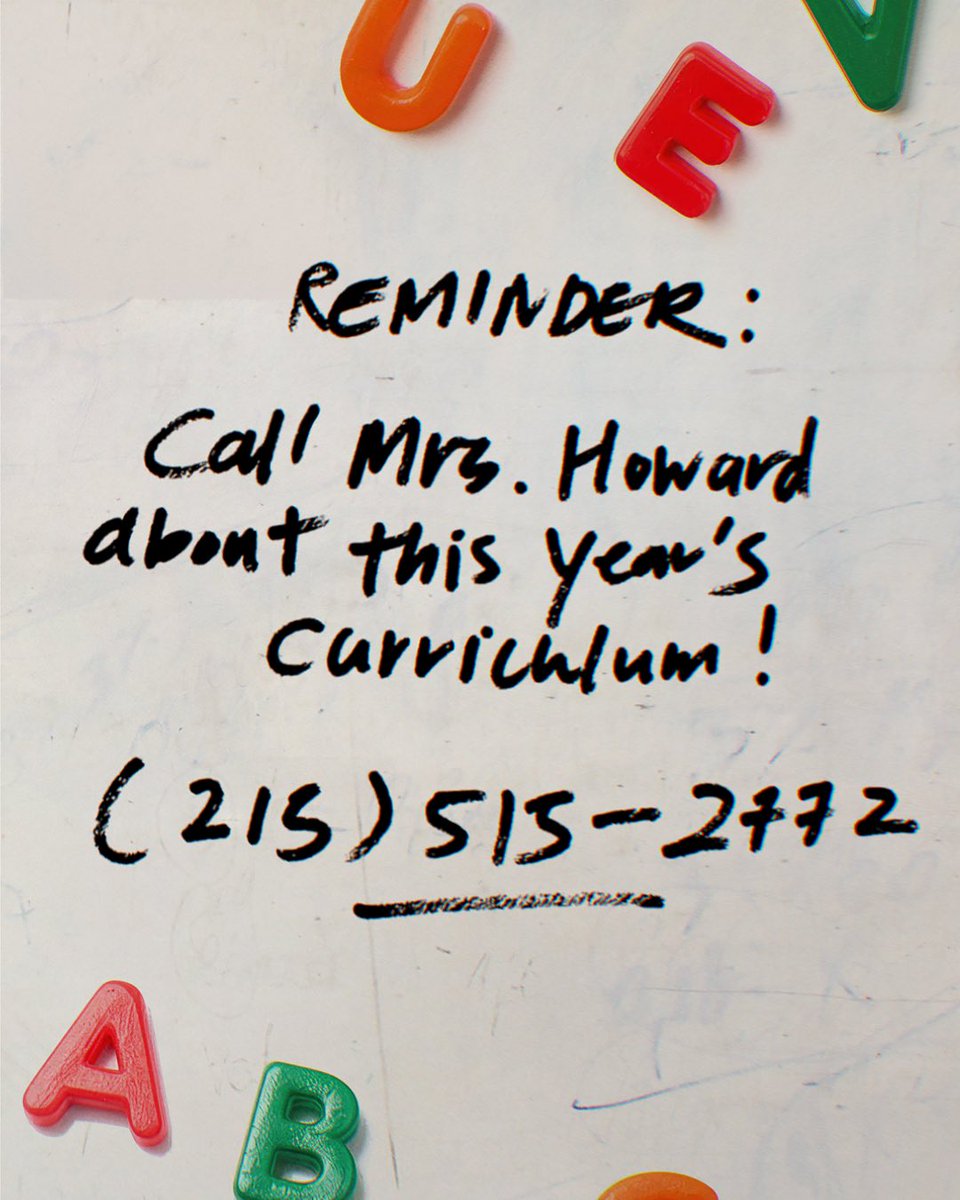 U
E
REMINDER:
Call Mrs. Howard
about this year's
Curriculum!
(215) 515-2772
A
B